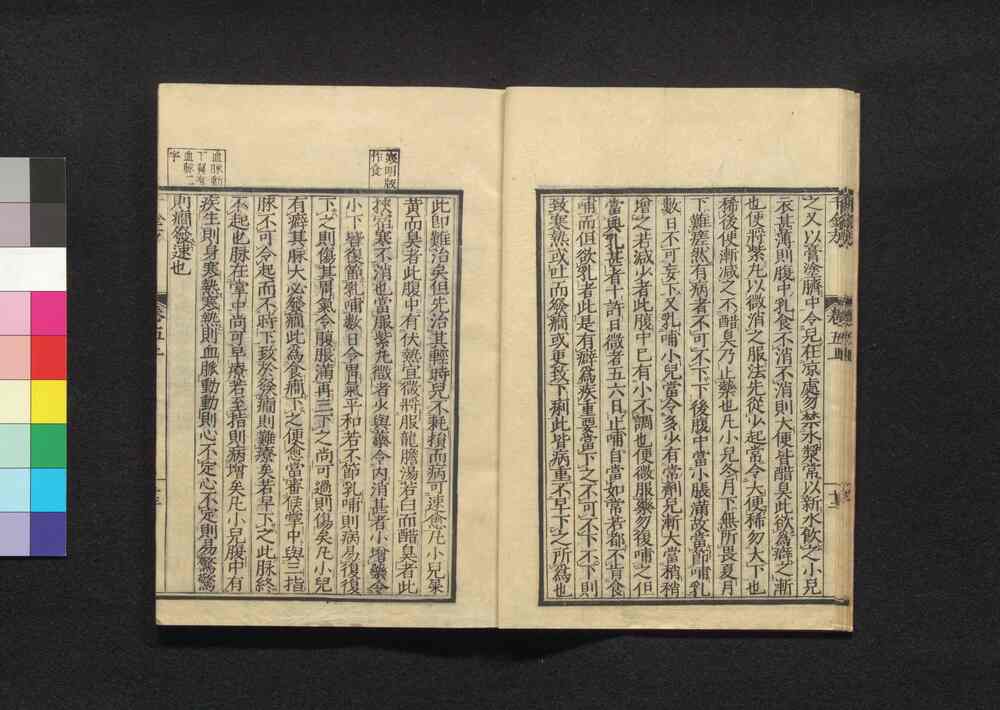 之又以膏塗臍中令兒在凉處勿禁水漿常以新水飲之小兒
衣甚薄則腹中乳食不消不消則大便皆醋臭此欲為癖之漸
也便將紫丸以微消之服法先從少起常令大便稀勿大下也
稀後便漸减之不醋臭乃止藥也凡小兒冬月下無所畏夏月
下難瘥然有病者不可不下下後腹中當小脹滿故當節哺乳
數日不可妄下又乳哺小兒當令多少有常劑兒漸大當稍稍
增之若减少者此腹中已有小不調也便微服藥勿復哺之但
當與乳甚者十許日微者五六日止哺自當如常若都不肯食
哺而但欲乳者此是有癖為疾重要當下之不可不下不下則
致寒熱或吐而發癇或更致下痢此皆病重不早下之所為也
卷五
此即難治矣但先治其輕時兒不耗損而病可速愈凡小兒屎
黃而臭者此腹中有伏熱宜微將服龍膽湯若白而醋臭者此
挾宿寒不消也當服紫丸微者少與藥令内消甚者小增藥令
小下皆復節乳哺數日令胃氣平和若不節乳哺則病易復復
下之則傷其胃氣令腹脹滿再三下之尚可過則傷矣凡小兒
有癖其脉大必發癇此為食癇下之便愈當審候掌中與三指
脉不可令起而不時下致於發癇則難療矣若早下之此脉終
不起也脉在掌中尚可早療若至指則病增矣凡小兒腹中有
疾生則身寒熱寒熱則血脉動動則心不定心不定則易驚驚
則癇發速也
寒明版
作食
血脉動
下異有
血脉二
字